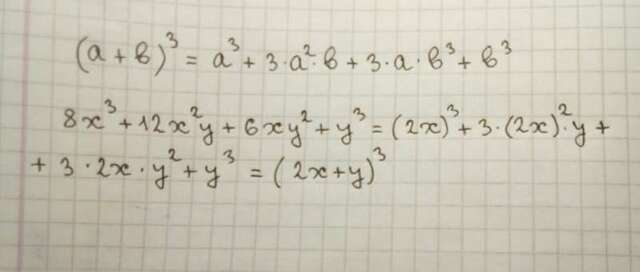 (a + b)³ = a³ + 3·a²·b + 3·a·b³ + b³
8x³ + 12x²y + 6xy² + y³ = (2x)³ + 3·(2x)²·y +
+ 3·2x·y² + y³ = (2x+y)³